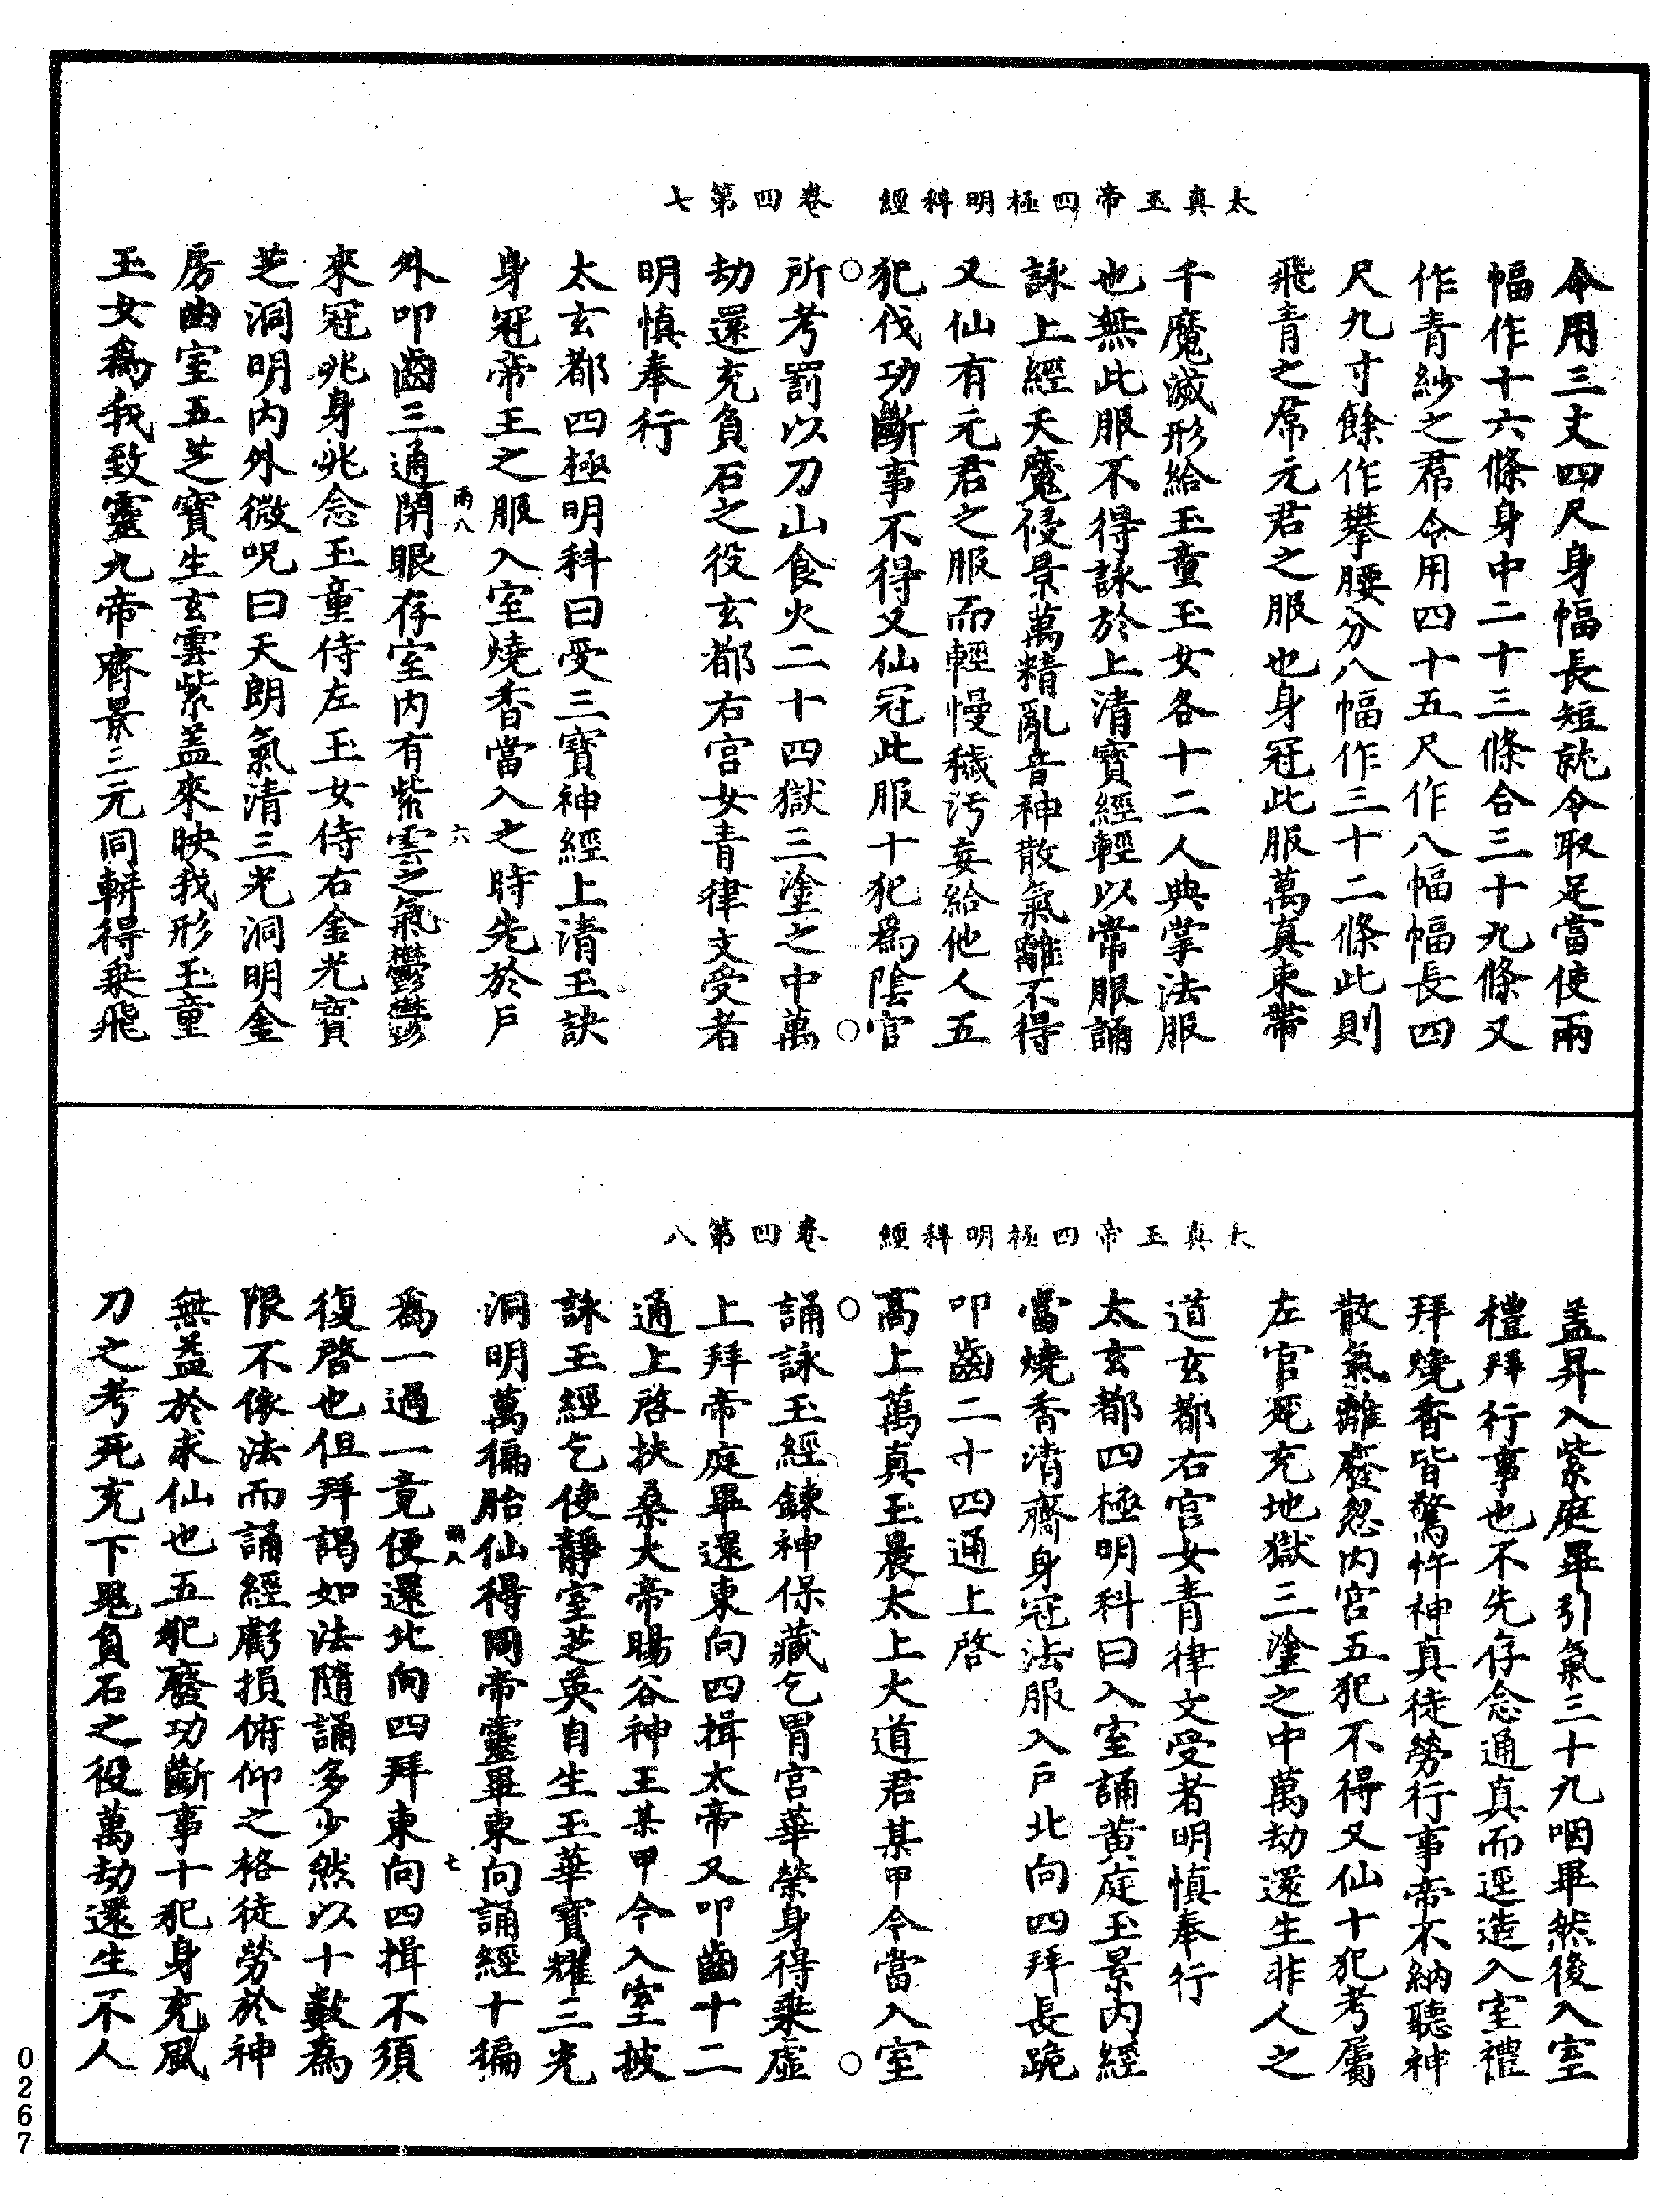 太真玉帝四極明科經 卷四第七
令用三丈四尺身幅長短就令取足當使兩
幅作十六條身中二十三條合三十九條又
作青紗之帬令用四十五尺作八幅幅長四
尺九寸餘作攀腰分八幅作三十二條此則
飛青之帬元君之服也身冠此服萬真束帶
千魔滅形給玉童玉女各十二人典掌法服
也無此服不得詠於上清寶經輕以常服誦
詠上經天魔侵景萬精亂音神散氣離不得
又仙有元君之服而輕慢穢污妄給他人五
犯伐功斷事不得又仙冠此服十犯為陰官
所考罰以刀山食火二十四獄三塗之中萬
劫還充負石之役玄都右宮女青律文受者
明慎奉行
太玄都四極明科曰受三寶神經上清玉訣
身冠帝王之服入室燒香當入之時先於戶
外叩齒三通閉眼存室內有紫雲之氣鬱鬱
兩八
六
來冠兆身兆念玉童侍左玉女侍右金光寶
芝洞明內外微呪曰天朗氣清三光洞明金
房曲室五芝寶生玄雲紫盖來映我形玉童
玉女為我致靈九帝齊景三元同軿得乘飛
太真玉帝四極明科經 卷四第八
盖昇入紫庭畢引氣三十九咽畢然後入室
禮拜行事也不先存念通真而逕造入室禮
拜燒香皆驚忤神真徒勞行事帝不納聽神
散氣離廢忽內宮五犯不得又仙十犯考屬
左官死充地獄三塗之中萬劫還生非人之
道玄都右宮女青律文受者明慎奉行
太玄都四極明科曰入室誦黄庭玉景內經
當燒香清齋身冠法服入戶北向四拜長跪
叩齒二十四通上啓
高上萬真玉晨太上大道君某甲今當入室
誦詠玉經鍊神保藏乞胃宮華榮身得乘虛
上拜帝庭畢還東向四揖太帝又叩齒十二
通上啓扶桑大帝暘谷神王某甲今入室披
詠玉經乞使靜室芝英自生玉華寶耀三光
洞明萬徧胎仙得同帝靈畢東向誦經十徧
為一過一竟便還北向四拜東向四揖不須
兩八
七
復啓也但拜謁如法隨誦多少然以十數為
限不依法而誦經虧損俯仰之格徒勞於神
無益於求仙也五犯廢功斷事十犯身充風
刀之考死充下鬼負石之役萬劫還生不人
0267